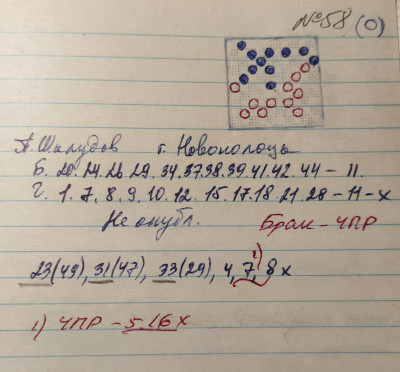 №58 (0)
П. Шклудов г. Новополоцк
Б. 20. 24. 26. 29. 34. 37. 38. 39. 41. 42. 44 – 11.
Ч. 1. 7. 8. 9. 10. 12. 15. 17. 18. 21. 28 – 11 – x
Не опубл. Брак – ЧПР
1)
23(49), 31(47), 33(29), 4, 7, 8 x
1) ЧПР – 5.16 x